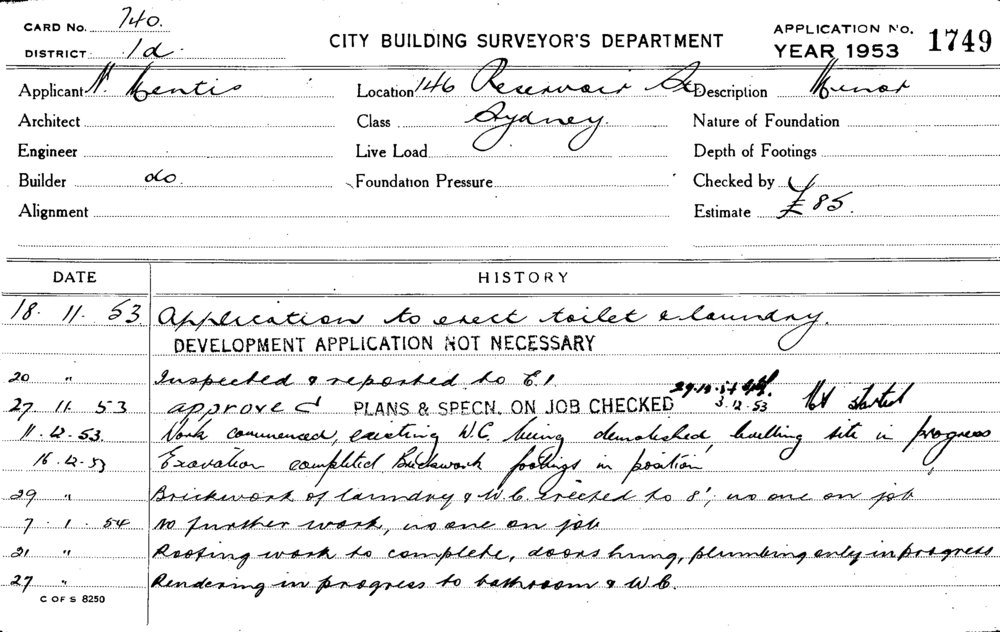 CARD No. 740.
DISTRICT 1d.
CITY BUILDING SURVEYOR'S DEPARTMENT
APPLICATION No. 1749
YEAR 1953
Applicant N. Mentis Location 146 Reservoir St Description Minor
Architect Class Sydney. Nature of Foundation
Engineer Live Load Depth of Footings
Builder do. Foundation Pressure Checked by
Alignment Estimate £85.
DATE HISTORY
18. 11. 53 Application to erect toilet & laundry.
DEVELOPMENT APPLICATION NOT NECESSARY
20 " Inspected & reported to E.I.
27. 11. 53 approved PLANS & SPECN. ON JOB CHECKED 3.12.53 Not started
11.12.53. Work commenced, existing W.C. being demolished, levelling site in progress
16.12.53 Exavation completed Brickwork footings in position
29 " Brickwork of laundry & W.C. erected to 8', no one on job
7. 1. 54 No further work, no one on job
21 " Roofing work to complete, doors hung, plumbing only in progress
27 " Rendering in progress to bathroom & W.C.
C OF S 8250